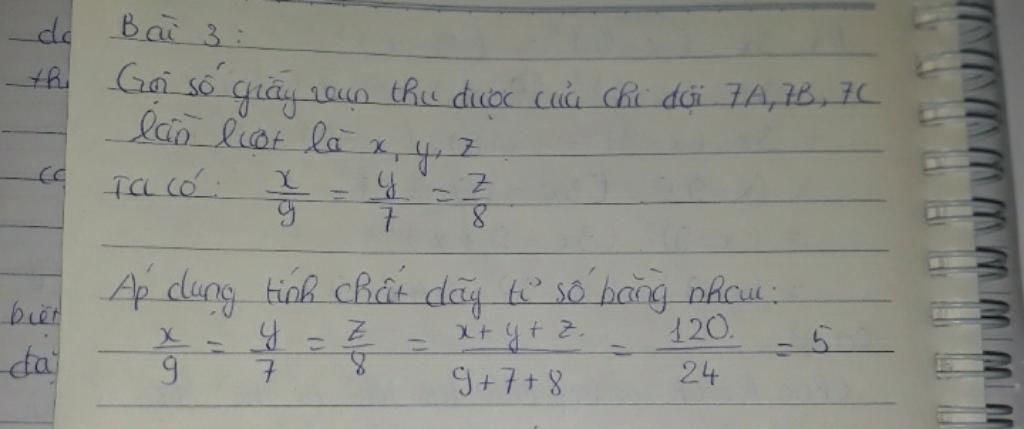 Bài 3:
Gọi số giấy vụn thu được của chi đội 7A, 7B, 7C
lần lượt là x, y, z
Ta có: x/9 = y/7 = z/8
Áp dụng tính chất dãy tỉ số bằng nhau:
x/9 = y/7 = z/8 = x+y+z/9+7+8 = 120/24 = 5
biết